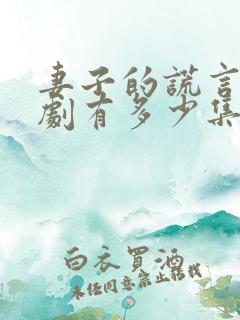 妻子的謊言
劇有多少集
白衣買酒
未经同意禁止转载